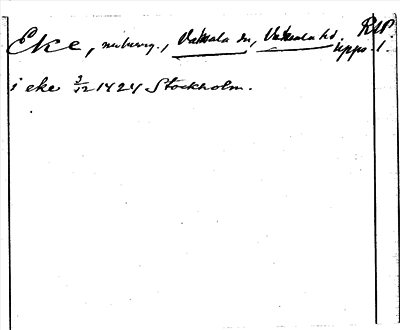 Eke, nuburg., Vaksala sn, Vaksala hd. RAP.
Upps. l.
i eke 3/12 1424 Stockholm.